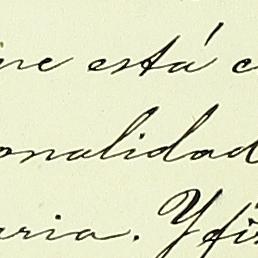 ine está c
onalidad
aria. Y fis